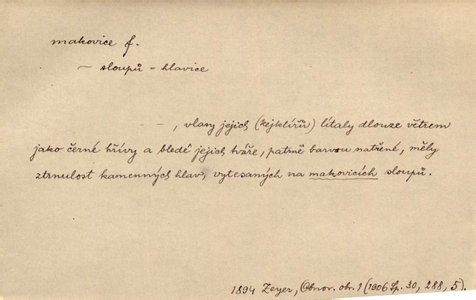 makovice f.
~ sloupů - hlavice
—, vlasy jejich (kejklířů) lítaly dlouze větrem
jako černé hřívy a bledé jejich tváře, patrně barvou natřené, měly
ztrnulost kamenných hlav, vytesaných na makovicích sloupů.
1894 Zeyer, Obnov. obr. 1 (1906 Sp. 30, 288, 5).